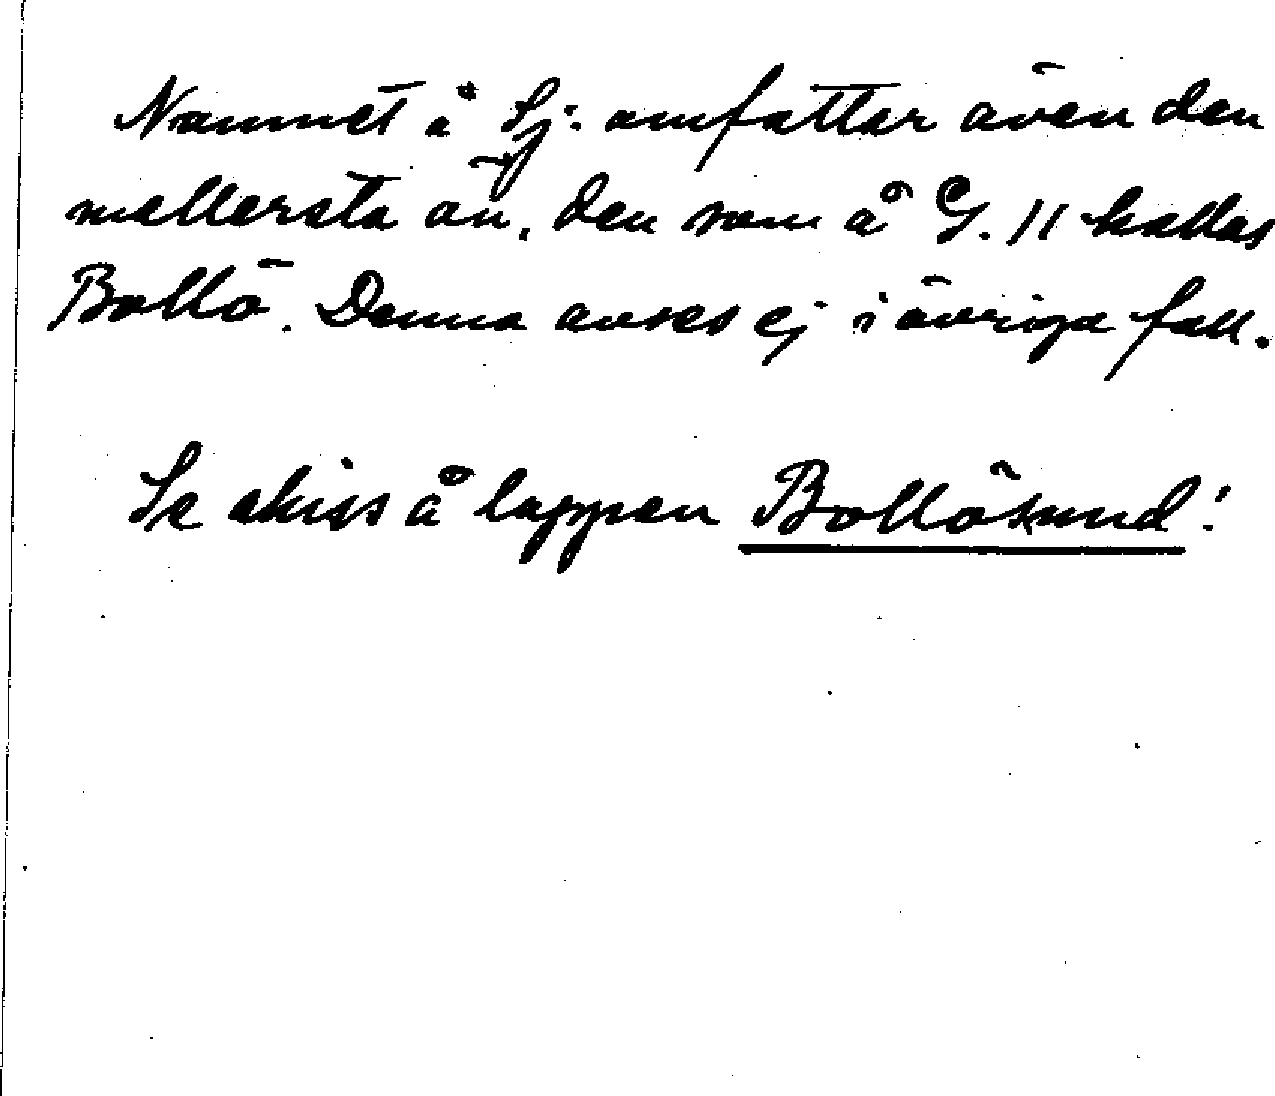 Namnet å Sj. omfattar även den
mellersta ön, den som å G. 11 kallas
Bollö. Denna avses ej i övriga fall.
Se skiss å lappen Bollösund!